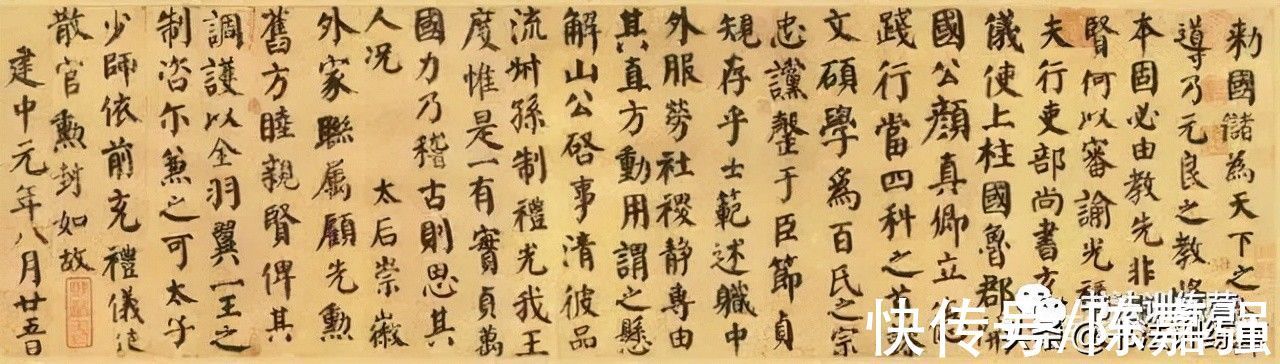 勑國儲爲天下之
導乃元良之教將
本固必由教先非
賢何以審諭光
夫行吏部尚書
儀使上柱國魯郡
國公顏真卿立
踐行當四科之
文碩學爲百民之宗
忠讜罄于臣節貞
規存乎士範述職中
外服勞社稷静專由
其直方動用謂之懸
解山公啓事清彼品
流叔孫制禮光我王
度惟是一有實貞萬
國力乃稽古則思其
人況 太后崇徽
外家聯屬顧先勳
舊方睦親賢俾其
調護以全羽翼一王之
制咨尔兼之可太子
少師依前充禮儀使
散官勳封如故
建中元年八月廿五日
快传号/陈嘉强